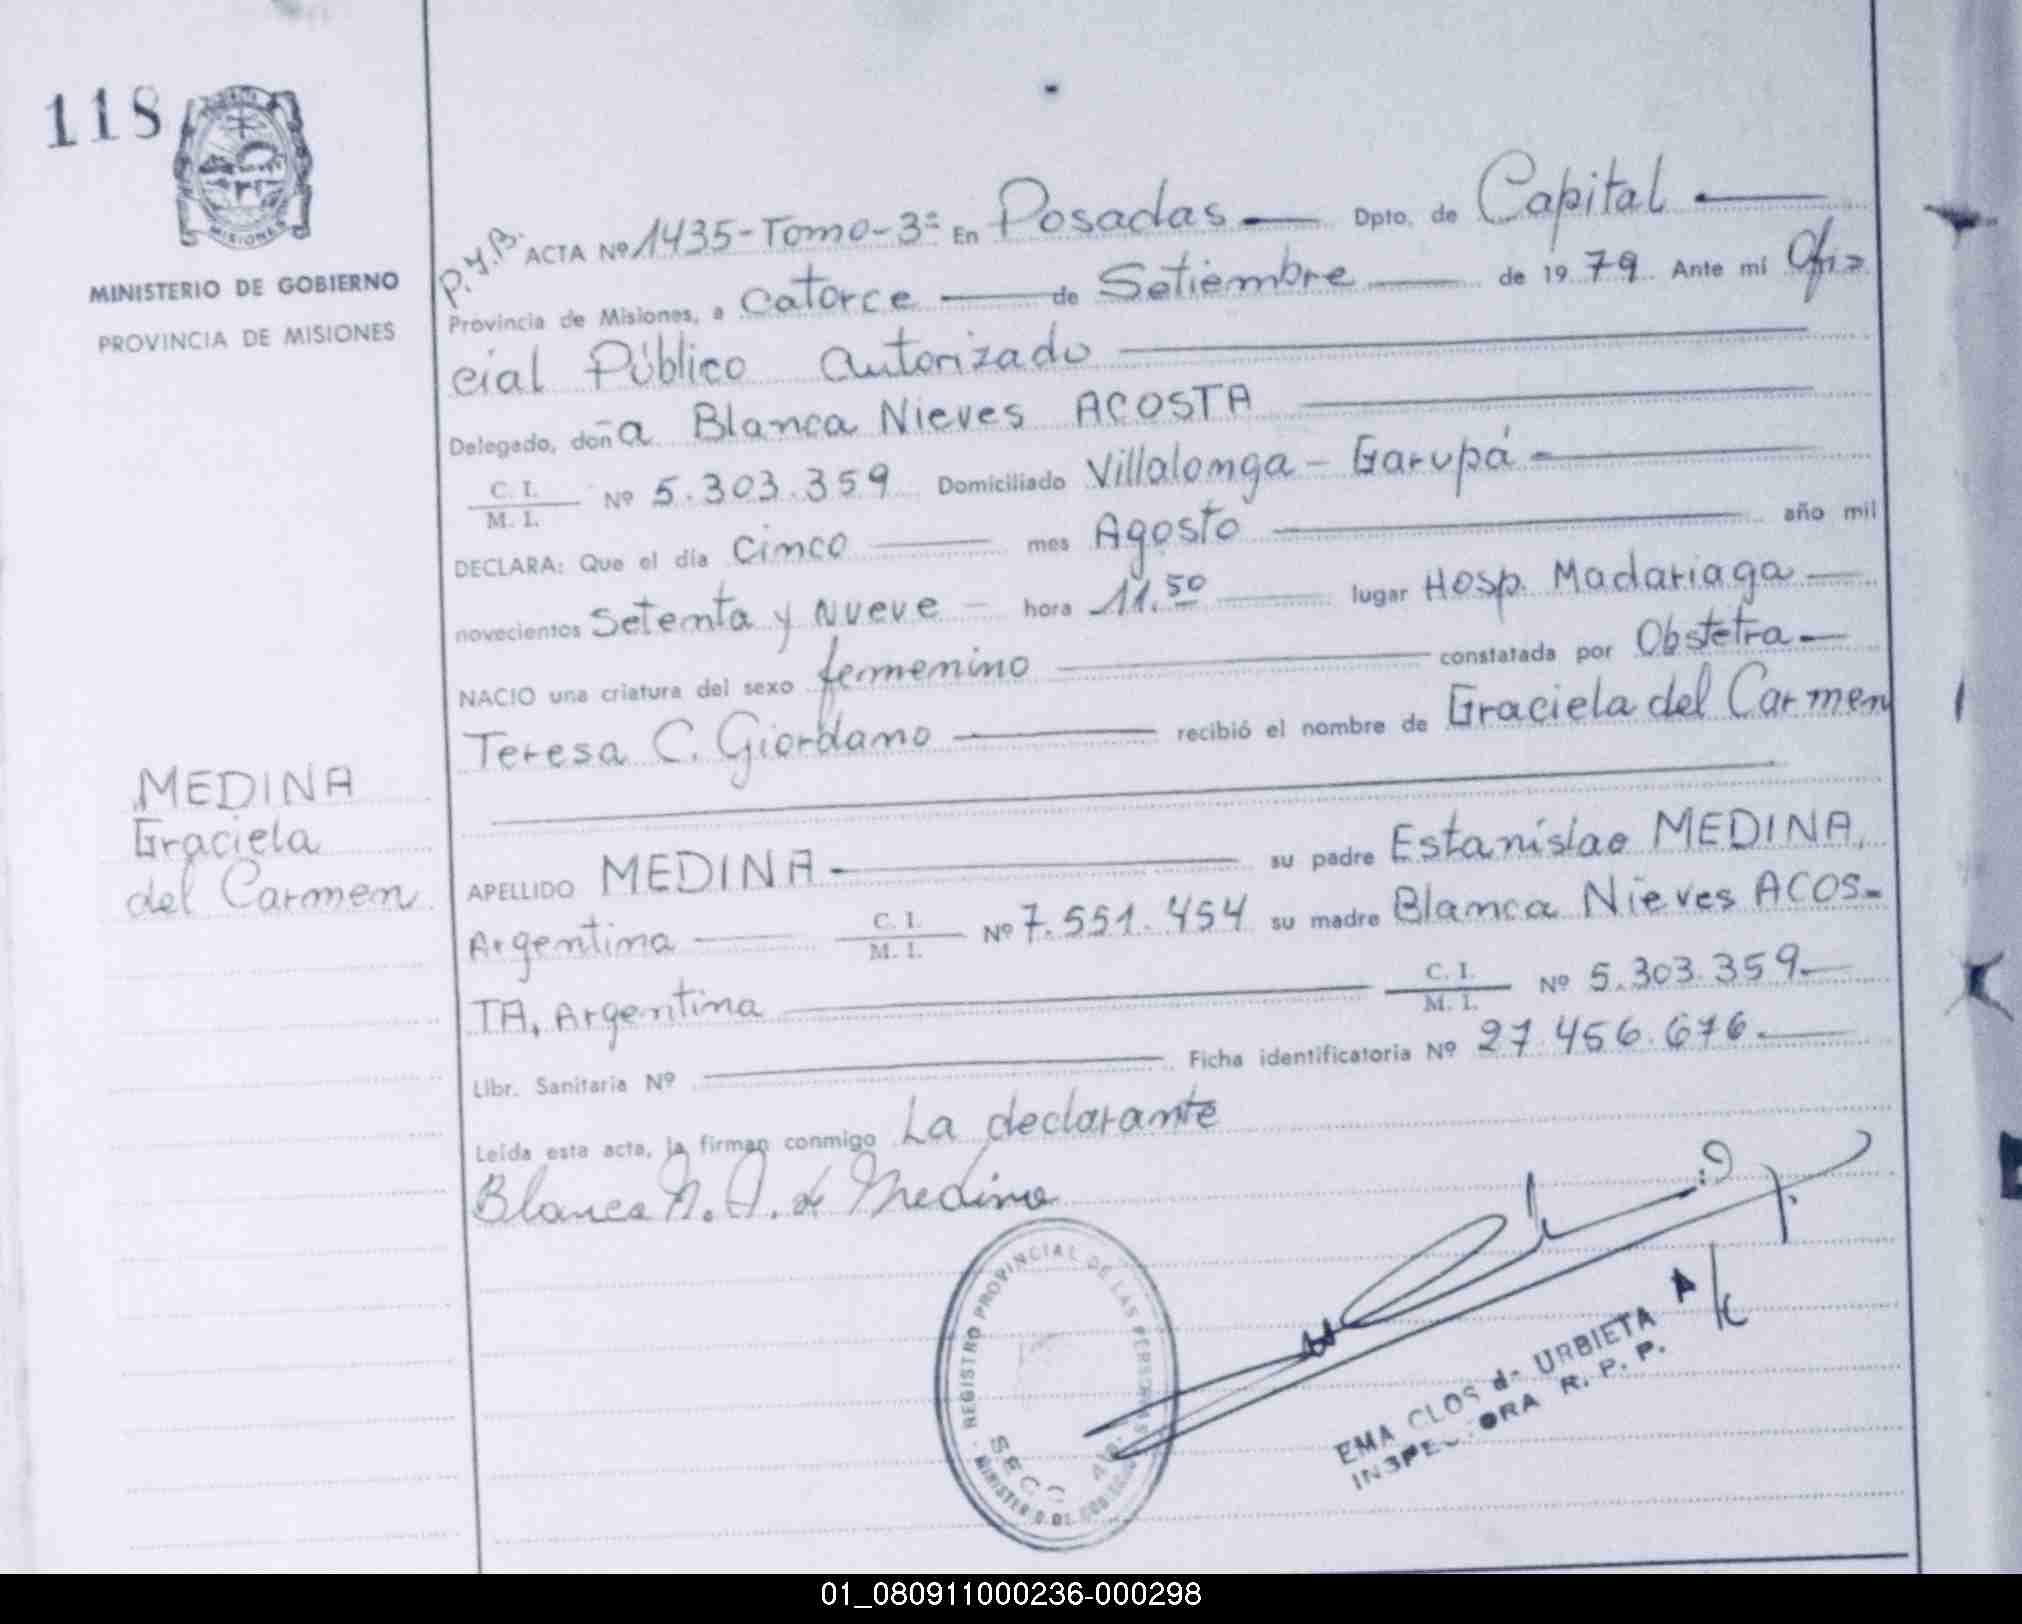 118
MISIONES
MINISTERIO DE GOBIERNO
PROVINCIA DE MISIONES
P.y.B. ACTA Nº 1435-Tomo-3º En Posadas Dpto. de Capital
Provincia de Misiones, a catorce de Setiembre de 1979 Ante mí Ofi=
cial Público Autorizado
Delegado, doña Blanca Nieves ACOSTA
C. I.
M. I. Nº 5.303.359 Domiciliado Villalonga - Garupá-
DECLARA: Que el día cinco mes Agosto año mil
novecientos setenta y nueve - hora 11.50 lugar Hosp. Madariaga
NACIO una criatura del sexo femenino constatada por Obstetra
Teresa C. Giordano recibió el nombre de Graciela del Carmen
MEDINA
Graciela
del Carmen
APELLIDO MEDINA su padre Estanislao MEDINA,
Argentina C. I.
M. I. Nº 7.551.454 su madre Blanca Nieves ACOS-
TA, Argentina C. I.
M. I. Nº 5.303.359
Libr. Sanitaria Nº Ficha identificatoria Nº 27.456.676.
Leída esta acta, la firman conmigo La declarante
Blanca N. A. de Medina
REGISTRO PROVINCIAL DE LAS PERSONAS
SECC
EMA CLOS de URBIETA
INSPECTORA R. P. P.
01_080911000236-000298